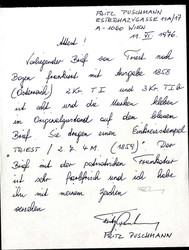 FRITZ PUSCHMANN
ESTERHAZYGASSE 11A/17
A-1060 WIEN
11. VI. 1976.
Attest!
Vorliegender Brief von Triest nach
Bozen frankiert mit Ausgabe 1858
(Österreich) 2 Kr T I und 3 Kr T I b
ist echt und die Marken kleben
im Originalzustand auf dem blauen
Brief. Sie tragen einen Einkreisstempel
TRIEST / 2. 7. 4 M. (1859). Der
Brief mit der Frankatur
ist sehr und ich habe
ihn mit meinem Zeichen
versehen.
FRITZ PUSCHMANN